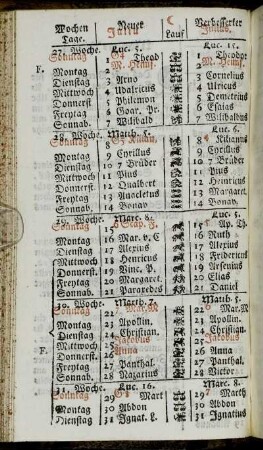 Wochen Neuer Lauf Verbesserter
Tage.
27. Woche. Luc. 5. Luc. 15.
Sonntag 1 Theod 1 Theodor
F. Montag 2 M. Heims. 2 M. Heims.
Dienstag 3 Arno 3 Cornelius
Mittwoch 4 Udalricus 4 Ulricus
Donnerst 5 Philemon 5 Demetrius
Freytag 6 Goar. Pr. 6 Esaias
Sonnab. 7 Wilibald 7 Wilibaldus
28. Woche. Matth. 5. Luc. 6.
Sonntag 8 Kilian. 8 Kilianus
Montag 9 Cyrillus 9 Cyrillus
Dienstag 10 7 Brüder 10 7 Brüder
Mittwoch 11 Pius 11 Pius
Donnerst. 12 Gualbert 12 Henricus
Freytag 13 Anacletus 13 Margaret.
Sonnab. 14 Bonav. 14 Bonav.
29. Woche. Marc. 8. Luc. 5.
Sonntag 15 Scap. F. 15 Ap. Th.
Montag 16 Mar. v. C 16 Ruth
Dienstag 17 Alexius 17 Alexius
Mittwoch 18 Henricus 18 Fridericus
Donnerst. 19 Vinc. P. 19 Arsenius
Freytag 20 Margaret. 20 Elias
Sonnab. 21 Paraxedes 21 Daniel
30. Woche. Matth. 7. Matth. 5.
Sonntag 22 Mar. M 22 Mar. M
Montag 23 Apollin. 23 Apollin.
Dienstag 24 Christian. 24 Christian.
Mittwoch 25 Jacobus 25 Jacobus
F. Donnerst. 26 Anna 26 Anna
Freytag 27 Panthal. 27 Panthal.
Sonnab. 28 Nazarius 28 Victor
31. Woche. Luc. 16. Marc. 8.
Sonntag 29 Mart 29 Marth
Montag 30 Abdon 30 Abdon
Dienstag 31 Ignat. L. 31 Ignatius